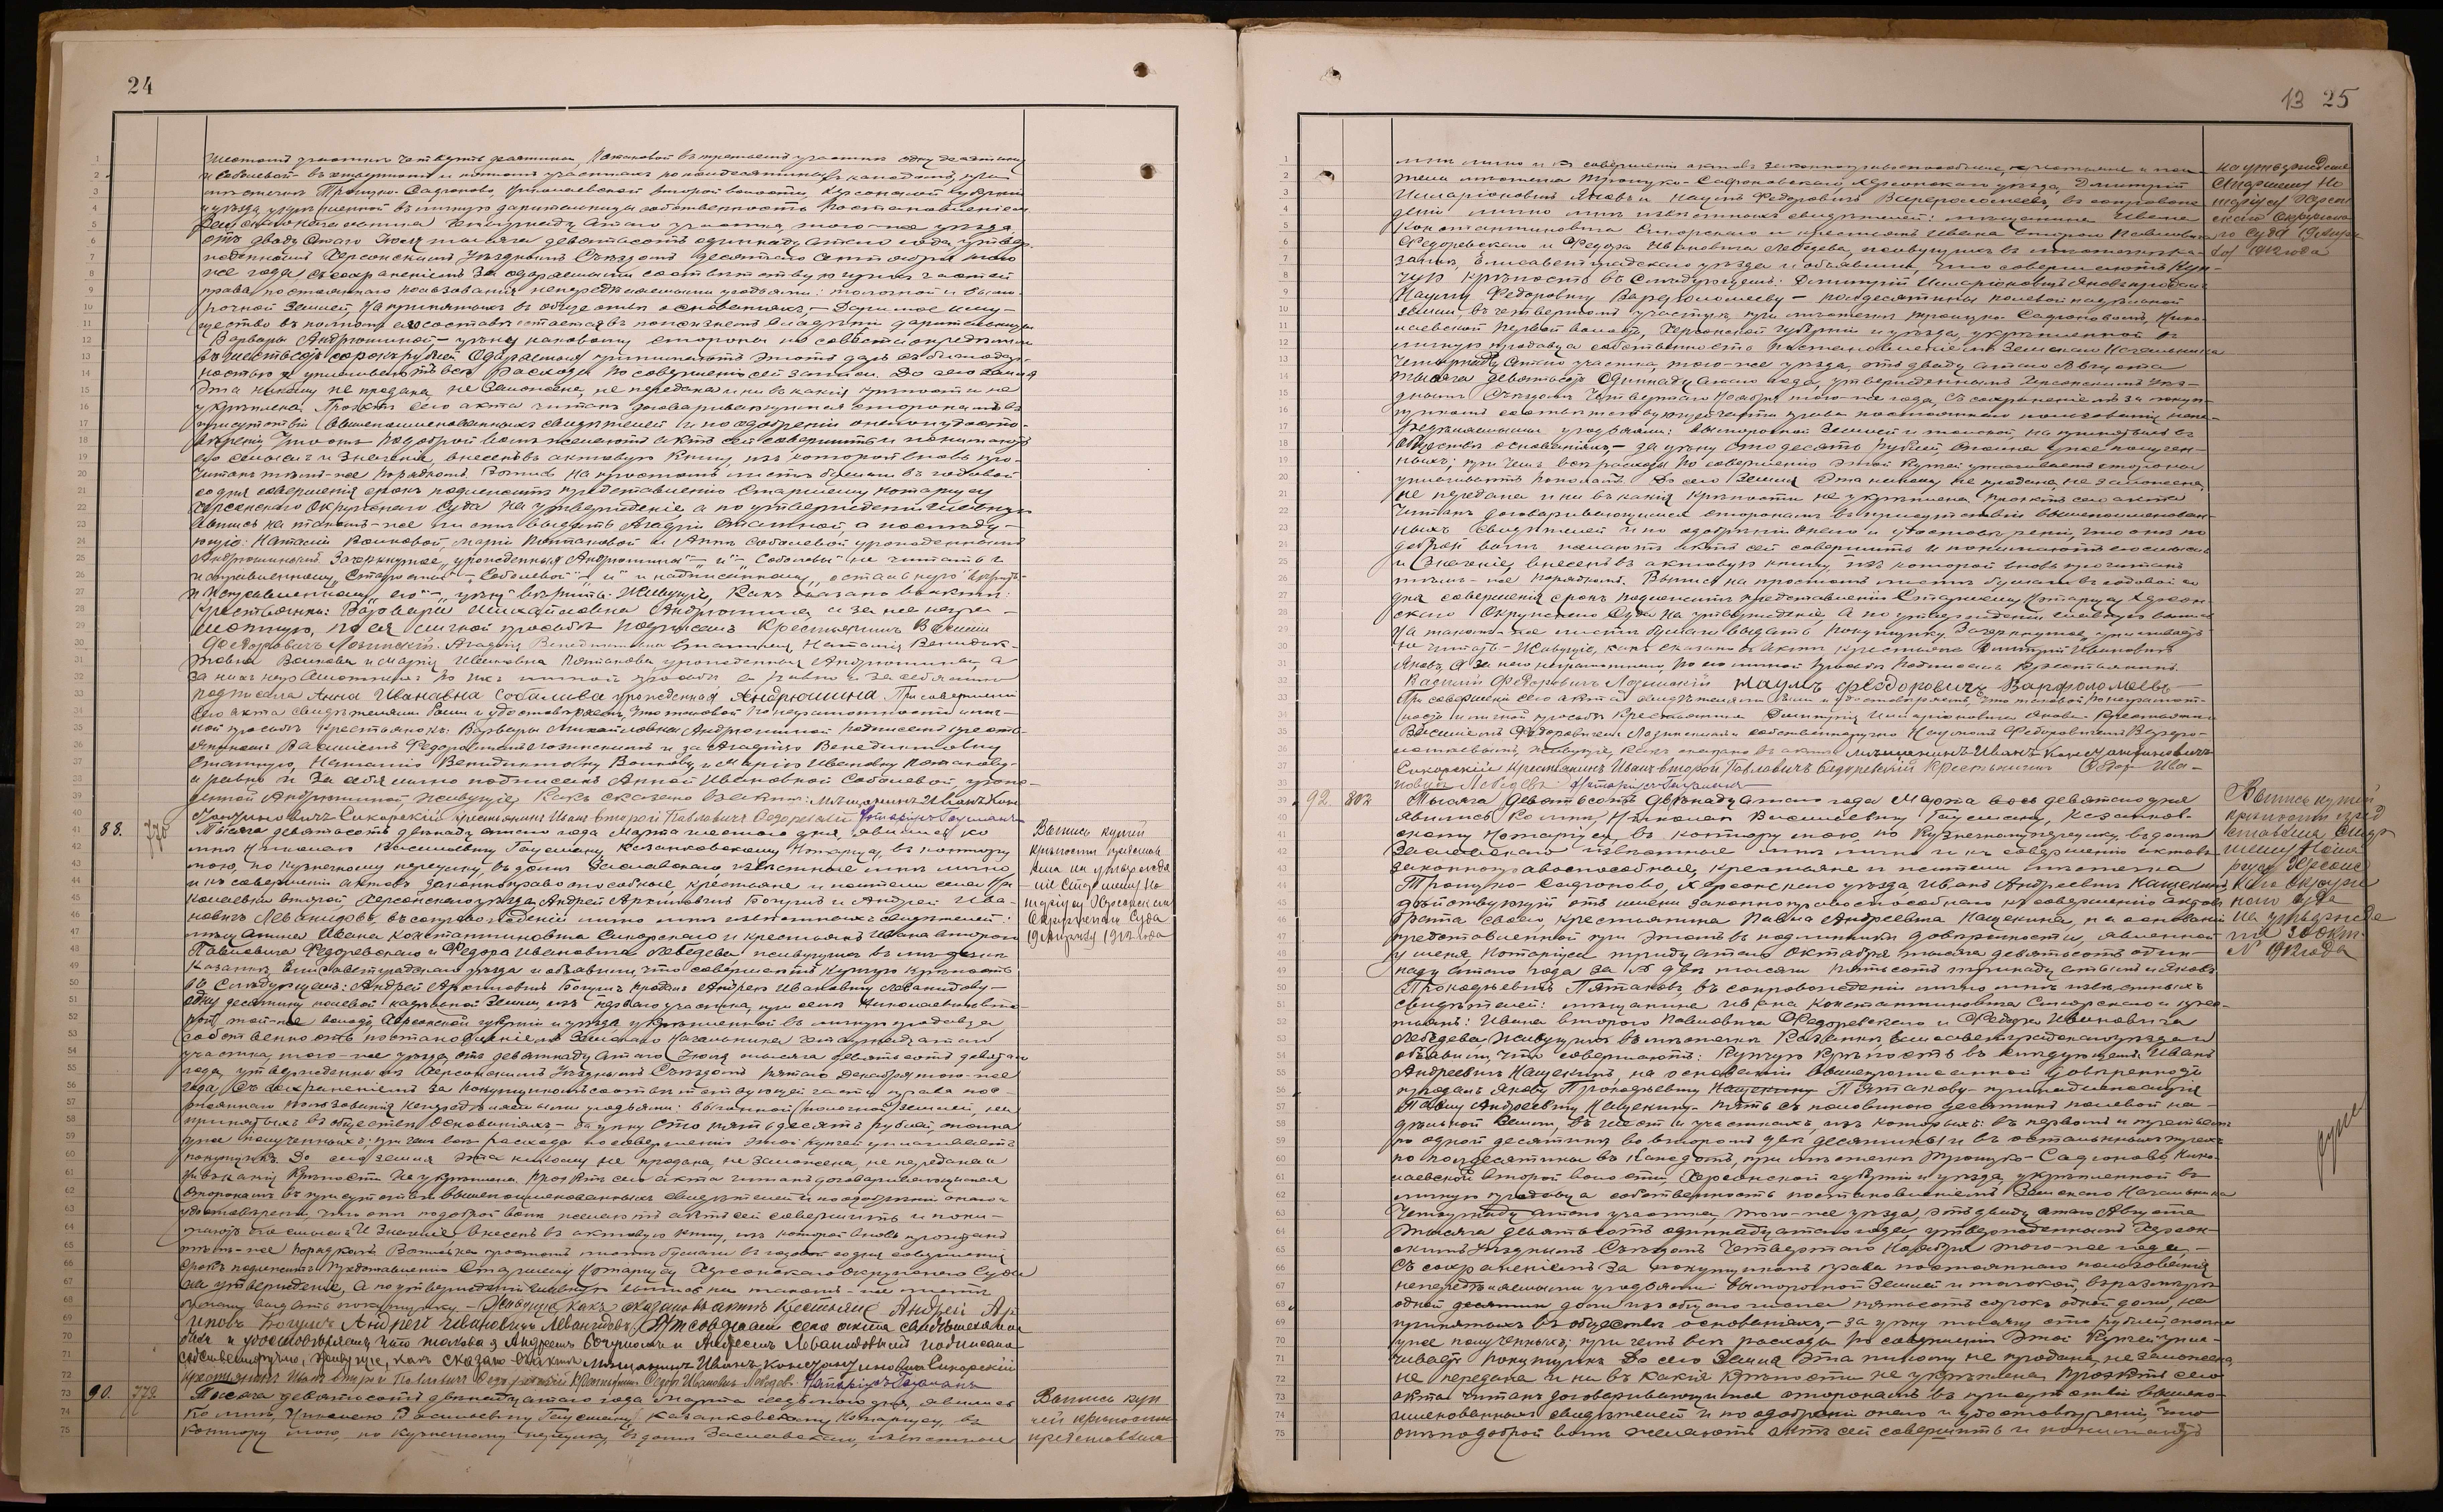 24
шестомъ участкѣ четверть десятины, Потаковой въ третьемъ участкѣ одну десятину
и Соболевой въ четвертомъ и пятомъ участкахъ по полдесятины въ каждомъ, при
мѣстечкѣ Троицко-Сафоново Николаевской второй волости, Херсонской губерніи
и уѣзда, укрѣпленной въ личную дарительницы собственность постановленіемъ
Земскаго Начальника Четырнадцатаго участка, того-же уѣзда
отъ двадцатаго Іюля тысяча девятьсотъ одиннадцатаго года, утвер-
жденнымъ Херсонскимъ Уѣзднымъ Съѣздомъ десятаго Сентября того
же года съ сохраненіемъ за одаряемыми соотвѣтствующихъ частей
права постояннаго пользованія непередѣляемыми угодьями: толочной и выго-
рочной землей, на принятыхъ въ обществѣ основаніяхъ. — Даримое иму-
щество въ полномъ его составѣ остается въ пожизненномъ владѣніи дарительницы
Варвары Андрюшиной — цѣну каковому стороны по совѣсти опредѣлили
въ шестьсотъ сорокъ рублей. Одаряемыя принимаютъ этотъ даръ съ благодар-
ностью и уплачиваютъ всѣ расходы по совершенію сей записи. До сего земля
эта никому не продана, не заложена, не передана и ни въ какія крѣпости не
укрѣплена. Проектъ сего акта читанъ договаривающимся сторонамъ въ
присутствіи вышепоименованныхъ свидѣтелей и по одобреніи онаго и удосто-
вѣреніи, что онѣ по доброй волѣ желаютъ актъ сей совершить и понимаютъ
его смыслъ и значеніе, внесенъ въ актовую книгу, изъ которой вновь про-
читанъ тѣмъ-же порядкомъ. Выпись на простомъ листѣ бумаги въ годовой
со дня совершенія срокъ подлежитъ представленію Старшему Нотаріусу
Херсонскаго Окружнаго Суда на утвержденіе, а по утвержденіи главную
выпись на таковомъ-же листѣ выдать Агафіи
Наталіи Волковой, Маріи Потаковой и Аннѣ Соболевой урожденнымъ
Андрюшинымъ. Зачеркнутое „урожденныя Андрюшины“ — „и“ — „Соболевы“ не читать и
исправленному
Крестьянки: Варвара Михайловна Андрюшина, а за нее негра-
мотную, по ея личной просьбѣ подписалъ крестьянинъ Василій
Федоровичъ Лозинскій. Агафія Венедиктовна Наталія Венедик-
товна Волкова и Марія Ивановна Потакова, урожденныя Андрюшины, а
за нихъ неграмотныхъ по ихъ личной просьбѣ а равно и за себя лично
подписала Анна Ивановна Соболива урожденная Андрюшина. При совершеніи
сего акта свидѣтелями были и удостовѣряемъ, что таковой по неграмотности и лич-
ной просьбѣ крестьянокъ: Варвары Михайловны Андрюшиной подписанъ кресть-
яниномъ Василіемъ Федоровичемъ Лозинскимъ и за Агафію Венедиктовну
Наталію Венедиктовну Волкову и Марію Ивановну Потакову
а равно и за себя лично подписанъ Анной Ивановной Соболевой урож-
денной Андрюшиной, живущіе, какъ сказано въ актѣ: Мѣщанинъ Иванъ Кон-
стантиновичъ Сикорскій крестьянинъ Иванъ второй Павловичъ Федоревскій Нотаріусъ Гаусманъ
88. 770 Тысяча девятьсотъ двѣнадцатаго года Марта шестого дня, явились ко
мнѣ Николаю Васильевичу Гаусману, Казанковскому Нотаріусу, въ контору
мою, по Кузнечному переулку, въ домѣ Заславскаго, извѣстные мнѣ лично
и къ совершенію актовъ законноправоспособные, крестьяне и жители села Ни-
колаевки второй, Херсонскаго уѣзда, Андрей Архиповичъ Богунъ и Андрей Ива-
новичъ Левандовъ, въ сопровожденіи лично мнѣ извѣстныхъ свидѣтелей:
мѣщанина Ивана Константиновича Сикорскаго и крестьянъ Ивана второго
Павловича Федоревскаго и Федора Ивановича Лебедева, живущихъ въ мѣстечкѣ
Казанкѣ, Елисаветградскаго уѣзда и объявили, что совершаютъ купчую крѣпость
въ слѣдующемъ: Андрей Архиповичъ Богунъ продалъ Андрею Ивановичу Левандову —
одну десятину полевой надѣльной земли, изъ перваго участка, при селѣ Николаевкѣ вто-
рой, той-же волости, Херсонской губерніи и уѣзда, укрѣпленной въ личную продавца
собственность постановленіемъ Земскаго Начальника Четырнадцатаго
участка, того-же уѣзда, отъ девятнадцатаго Іюля тысяча девятьсотъ девятаго
года, утвержденнымъ Херсонскимъ Уѣзднымъ Съѣздомъ пятаго Декабря того-же
года, съ сохраненіемъ за покупщикомъ соотвѣтствующей части права пос-
тояннаго пользованія непередѣляемыми угодьями: выгонной (толочной) землей, на
принятыхъ въ обществѣ основаніяхъ, — за цѣну сто пятьдесятъ рублей, сполна
уже полученныхъ; при чемъ всѣ расходы по совершенію этой купчей уплачиваетъ
покупщикъ. До сего земля эта никому не продана, не заложена, не передана и
ни въ какія крѣпости не укрѣплена. Проектъ сего акта читанъ договаривающимся
сторонамъ въ присутствіи вышепоименованныхъ свидѣтелей и по одобреніи онаго и
удостовѣреніи, что они по доброй волѣ желаютъ актъ сей совершить и пони-
маютъ его смыслъ и значеніе, внесенъ въ актовую книгу, изъ которой вновь прочитанъ
тѣмъ-же порядкомъ. Выпись на простомъ листѣ бумаги въ годовой со дня совершенія
срокъ подлежитъ представленію Старшему Нотаріусу Херсонскаго Окружнаго Суда
на утвержденіе, а по утвержденіи главную выпись на таковомъ-же листѣ
бумаги выдать покупщику. — Живущіе, какъ сказано въ актѣ крестьяне Андрей Ар-
хиповъ Богунъ Андрей Ивановичъ Левандовъ При совершеніи сего акта свидѣтелями
были и удостовѣряемъ что таковой Андреемъ Богуномъ и Андреемъ Левандовымъ подписанъ
собственноручно, живущіе, какъ сказано въ актѣ Мѣщанинъ Иванъ Константиновичъ Сикорскій
крестьянинъ Иванъ второй Павловичъ Федоревскій Крестьянинъ Федоръ Ивановичъ Лебедевъ Нотаріусъ Гаусманъ
Выпись купчей
крѣпости представ-
лена на утвержде-
ніе Старшему Но-
таріусу Херсонскаго
Окружнаго Суда
19 1912 года
90. 772 Тысяча девятьсотъ двѣнадцатаго года Марта седьмого дня, явились
ко мнѣ, Николаю Васильевичу Гаусману, Казанковскому Нотаріусу, въ
контору мою, по Кузнечному переулку, въ домѣ Заславскаго, извѣстные
Выпись куп-
чей крѣпости
представлена
13 25
мнѣ лично и къ совершенію актовъ законноправоспособные, крестьяне и жи-
тели мѣстечка Троицко-Сафоновскаго, Херсонскаго уѣзда, Дмитрій
Илларіоновичъ Яковъ и Наумъ Федоровичъ Варфоломеевъ, въ сопровож-
деніи лично мнѣ извѣстныхъ свидѣтелей: мѣщанина Ивана
Константиновича Сикорскаго и крестьянъ Ивана второго Павловича
Федоревскаго и Федора Ивановича Лебедева, живущихъ въ мѣстечкѣ Ка-
занкѣ, Елисаветградскаго уѣзда и объявили, что совершаютъ куп-
чую крѣпость въ слѣдующемъ: Дмитрій Илларіоновичъ Яковъ продалъ
Науму Федоровичу Варфоломееву — полдесятины полевой надѣльной
земли, въ четвертомъ участкѣ, при мѣстечкѣ Троицко-Сафоновомъ, Нико-
лаевской первой волости, Херсонской губерніи и уѣзда, укрѣпленной въ
личную продавца собственность постановленіемъ Земскаго Начальника
Четырнадцатаго участка, того-же уѣзда, отъ двадцатаго Августа
тысяча девятьсотъ одиннадцатаго года, утвержденнымъ Херсонскимъ Уѣз-
днымъ Съѣздомъ Четвертаго Ноября того-же года, съ сохраненіемъ за покуп-
щикомъ соотвѣтствующей части права постояннаго пользованія непе-
редѣляемыми угодьями: выгорочной землей и толокой, на принятыхъ въ
обществѣ основаніяхъ, — за цѣну сто десять рублей, сполна уже получен-
ныхъ; при чемъ всѣ расходы по совершенію этой купчей уплачиваютъ стороны
уплачиваютъ пополамъ. До сего земля эта никому не продана, не заложена,
не передана и ни въ какія крѣпости не укрѣплена. Проектъ сего акта
читанъ договаривающимся сторонамъ въ присутствіи вышепоименован-
ныхъ свидѣтелей и по одобреніи онаго и удостовѣреніи, что они по
доброй волѣ желаютъ актъ сей совершить и понимаютъ его смыслъ
и значеніе, внесенъ въ актовую книгу, изъ которой вновь прочитанъ
тѣмъ-же порядкомъ. Выпись на простомъ листѣ бумаги въ годовой со
дня совершенія срокъ подлежитъ представленію Старшему Нотаріусу Херсон-
скаго Окружнаго Суда на утвержденіе, а по утвержденіи главную выпись
на таковомъ-же листѣ бумаги выдать покупщику. Зачеркнутое „уплачиваютъ“
не читать. — Живущіе, какъ сказано въ актѣ крестьяне Дмитрій Илларіоновичъ
Яковъ, а за него неграмотнаго, по его личной просьбѣ подписалъ крестьянинъ
Василій Федоровичъ Лозинскій Наумъ Федоровичъ Варфоломеевъ
При совершеніи сего акта свидѣтелями были и удостовѣряемъ, что таковой по неграмот-
ности и личной просьбѣ крестьянина Дмитрія Илларіоновича Якова крестьяниномъ
Василіемъ Федоровичемъ Лозинскимъ и собственноручно Наумомъ Федоровичемъ Варфо-
ломеевымъ, живущіе, какъ сказано въ актѣ Мѣщанинъ Иванъ Константиновичъ
Сикорскій крестьянинъ Иванъ второй Павловичъ Федоревскій Крестьянинъ Федоръ Ива-
новичъ Лебедевъ Нотаріусъ Гаусманъ
на утвержденіе
Старшему Но-
таріусу Херсон-
скаго Окружна-
го Суда
1912 года
92 802 Тысяча девятьсотъ двѣнадцатаго года Марта восьмъ девятого дня
явились ко мнѣ, Николаю Васильевичу Гаусману, Казанков-
скому Нотаріусу, въ контору мою, по Кузнечному переулку, въ домѣ
Заславскаго извѣстные мнѣ лично и къ совершенію актовъ
законноправоспособные, крестьяне и жители мѣстечка
Троицко-Сафоново, Херсонскаго уѣзда, Иванъ Андреевичъ Нащекинъ,
дѣйствующій отъ имени законноправоспособнаго къ совершенію актовъ
брата своего, крестьянина Павла Андреевича Нащекина, на основаніи
представленной при этомъ въ подлинникѣ довѣренности, явленной
у меня Нотаріуса тридцатаго Октября тысяча девятьсотъ один-
надцатаго года за № двѣ тысячи пятьсотъ тринадцатымъ и Яковъ
Прокофьевичъ Пятаковъ, въ сопровожденіи лично мнѣ извѣстныхъ
свидѣтелей: мѣщанина Ивана Константиновича Сикорскаго и крес-
тьянъ: Ивана второго Павловича Федоревскаго и Федора Ивановича
Лебедева, живущихъ въ мѣстечкѣ Казанкѣ, Елисаветградскаго уѣзда и
объявили, что совершаютъ: купчую крѣпость въ слѣдующемъ: Иванъ
Андреевичъ Нащекинъ, на основаніи вышепрописанной довѣренности
продалъ Якову Прокофьевичу Нащекину Пятакову принадлежащія
Павлу Андреевичу Нащекину пять съ половиною десятинъ полевой на-
дѣльной земли, въ шести участкахъ, изъ которыхъ: въ первомъ и третьемъ
по одной десятинѣ, во второмъ двѣ десятины и въ остальныхъ трехъ
по полдесятины въ каждомъ, при мѣстечкѣ Троицко-Сафоново, Нико-
лаевской второй волости, Херсонской губерніи и уѣзда, укрѣпленной въ
личную продавца собственность постановленіемъ Земскаго Начальника
Четырнадцатаго участка, того-же уѣзда, отъ двадцатаго Августа
тысяча девятьсотъ одиннадцатаго года, утвержденнымъ Херсон-
скимъ Уѣзднымъ Съѣздомъ Четвертаго Ноября того-же года, —
съ сохраненіемъ за покупщикомъ права постояннаго пользованія
непередѣляемыми угодьями выгорочной землей и толокой, въ размѣрѣ
одной десятин доли изъ общаго числа пятьсотъ сорокъ одной доли, на
принятыхъ въ обществѣ основаніяхъ, — за цѣну тысячу сто рублей, сполна
уже полученныхъ; при чемъ всѣ расходы по совершенію этой купчей упла-
чиваетъ покупщикъ. До сего земля эта никому не продана, не заложена,
не передана и ни въ какія крѣпости не укрѣплена. Проектъ сего
акта читанъ договаривающимся сторонамъ въ присутствіи вышепо-
именованныхъ свидѣтелей и по одобреніи онаго и удостовѣреніи, что
они по доброй волѣ желаютъ актъ сей совершить и понимаютъ
Выпись купчей
крѣпости пред-
ставлена Стар-
шему Нота-
ріусу Херсонс-
каго Окруж-
наго Суда
на утвержде-
ніе 30 Окт.
1912 года